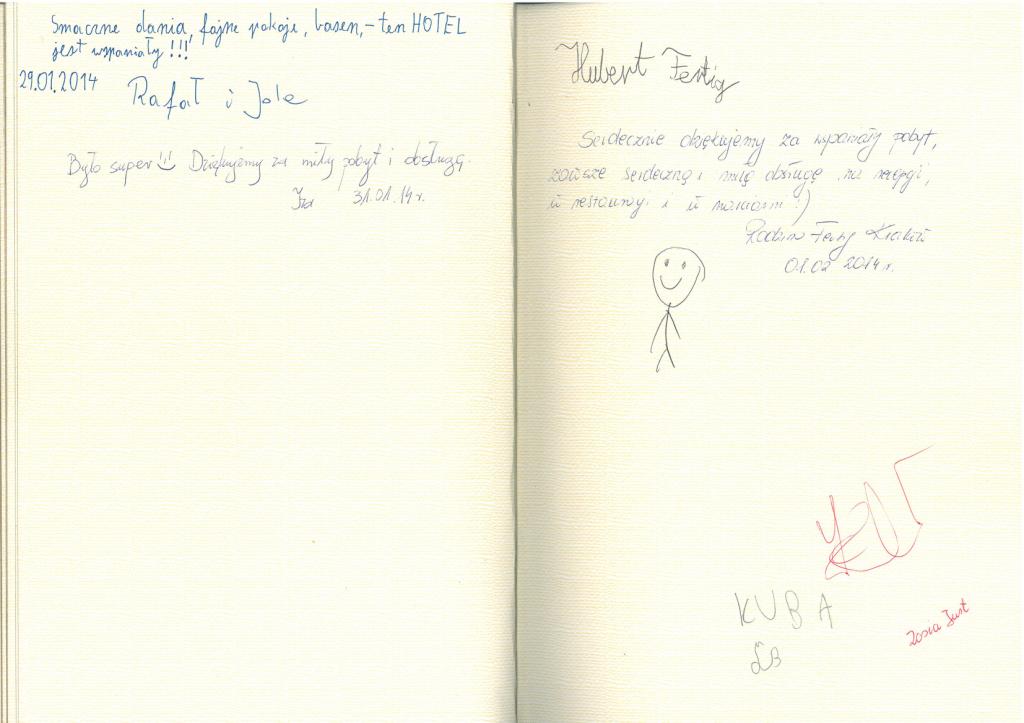 Smaczne dania, fajne pokoje, basen, - ten HOTEL
jest wspaniały!!!
29.01.2014
Rafał i Jole
Było super Dziękujemy za miły pobyt i obsługę.
Iza 31.01.14r.
Hubert Fertig
Serdecznie dziękujemy za wspaniały pobyt,
zawsze serdeczną i miłą obsługę na recepcji,
w restauracji i w :)
Rodzina Fertig Kraków
01.02 2014r.
KUBA
Zosia Just